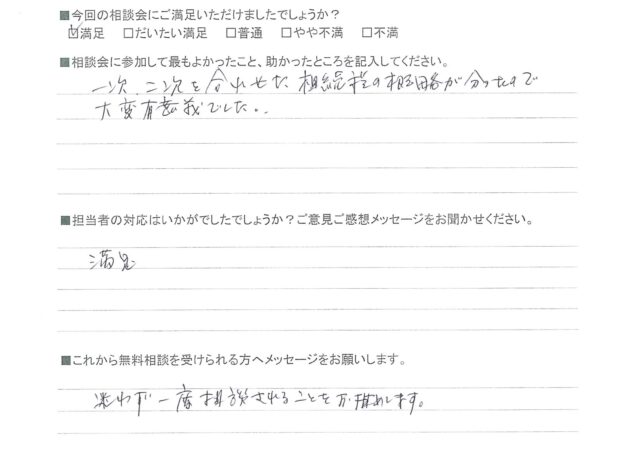 ■今回の相談会にご満足いただけましたでしょうか？
☑満足　☐だいたい満足　☐普通　☐やや不満　☐不満
■相談会に参加して最もよかったこと、助かったところを記入してください。
一次、二次を合わせた相続税の概略が分ったので
大変有意義でした。
■担当者の対応はいかがでしたでしょうか？ご意見ご感想メッセージをお聞かせください。
満足
■これから無料相談を受けられる方へメッセージをお願いします。
迷わず一度相談されることをお推めします。